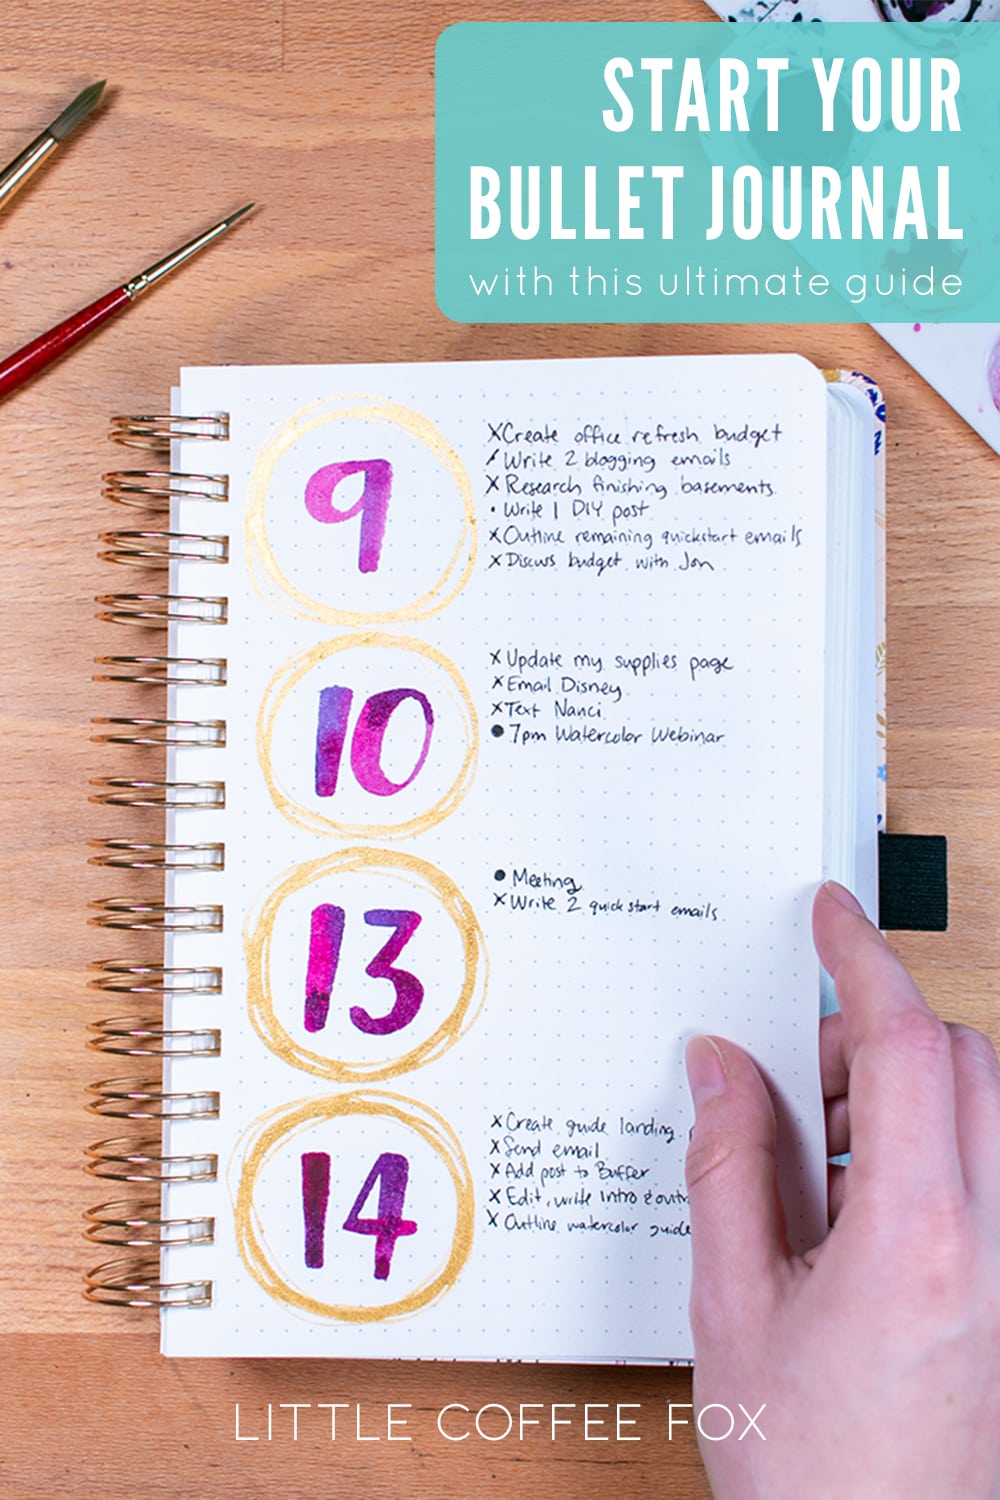 START YOUR
BULLET JOURNAL
with this ultimate guide
9
xCreate office refresh budget
/ Write 2 blogging emails
x Research finishing basements
• Write 1 DIY post
x Outline remaining quickstart emails
x Discuss budget with Jon
10
x Update my supplies page
x Email Disney
x Text Nanci
● 7pm Watercolor Webinar
13
● Meeting
x Write 2 quick start emails
14
x Create guide landing
x Send email
x Add post to Buffer
x Edit, write intro &
x Outline watercolor guide
LITTLE COFFEE FOX